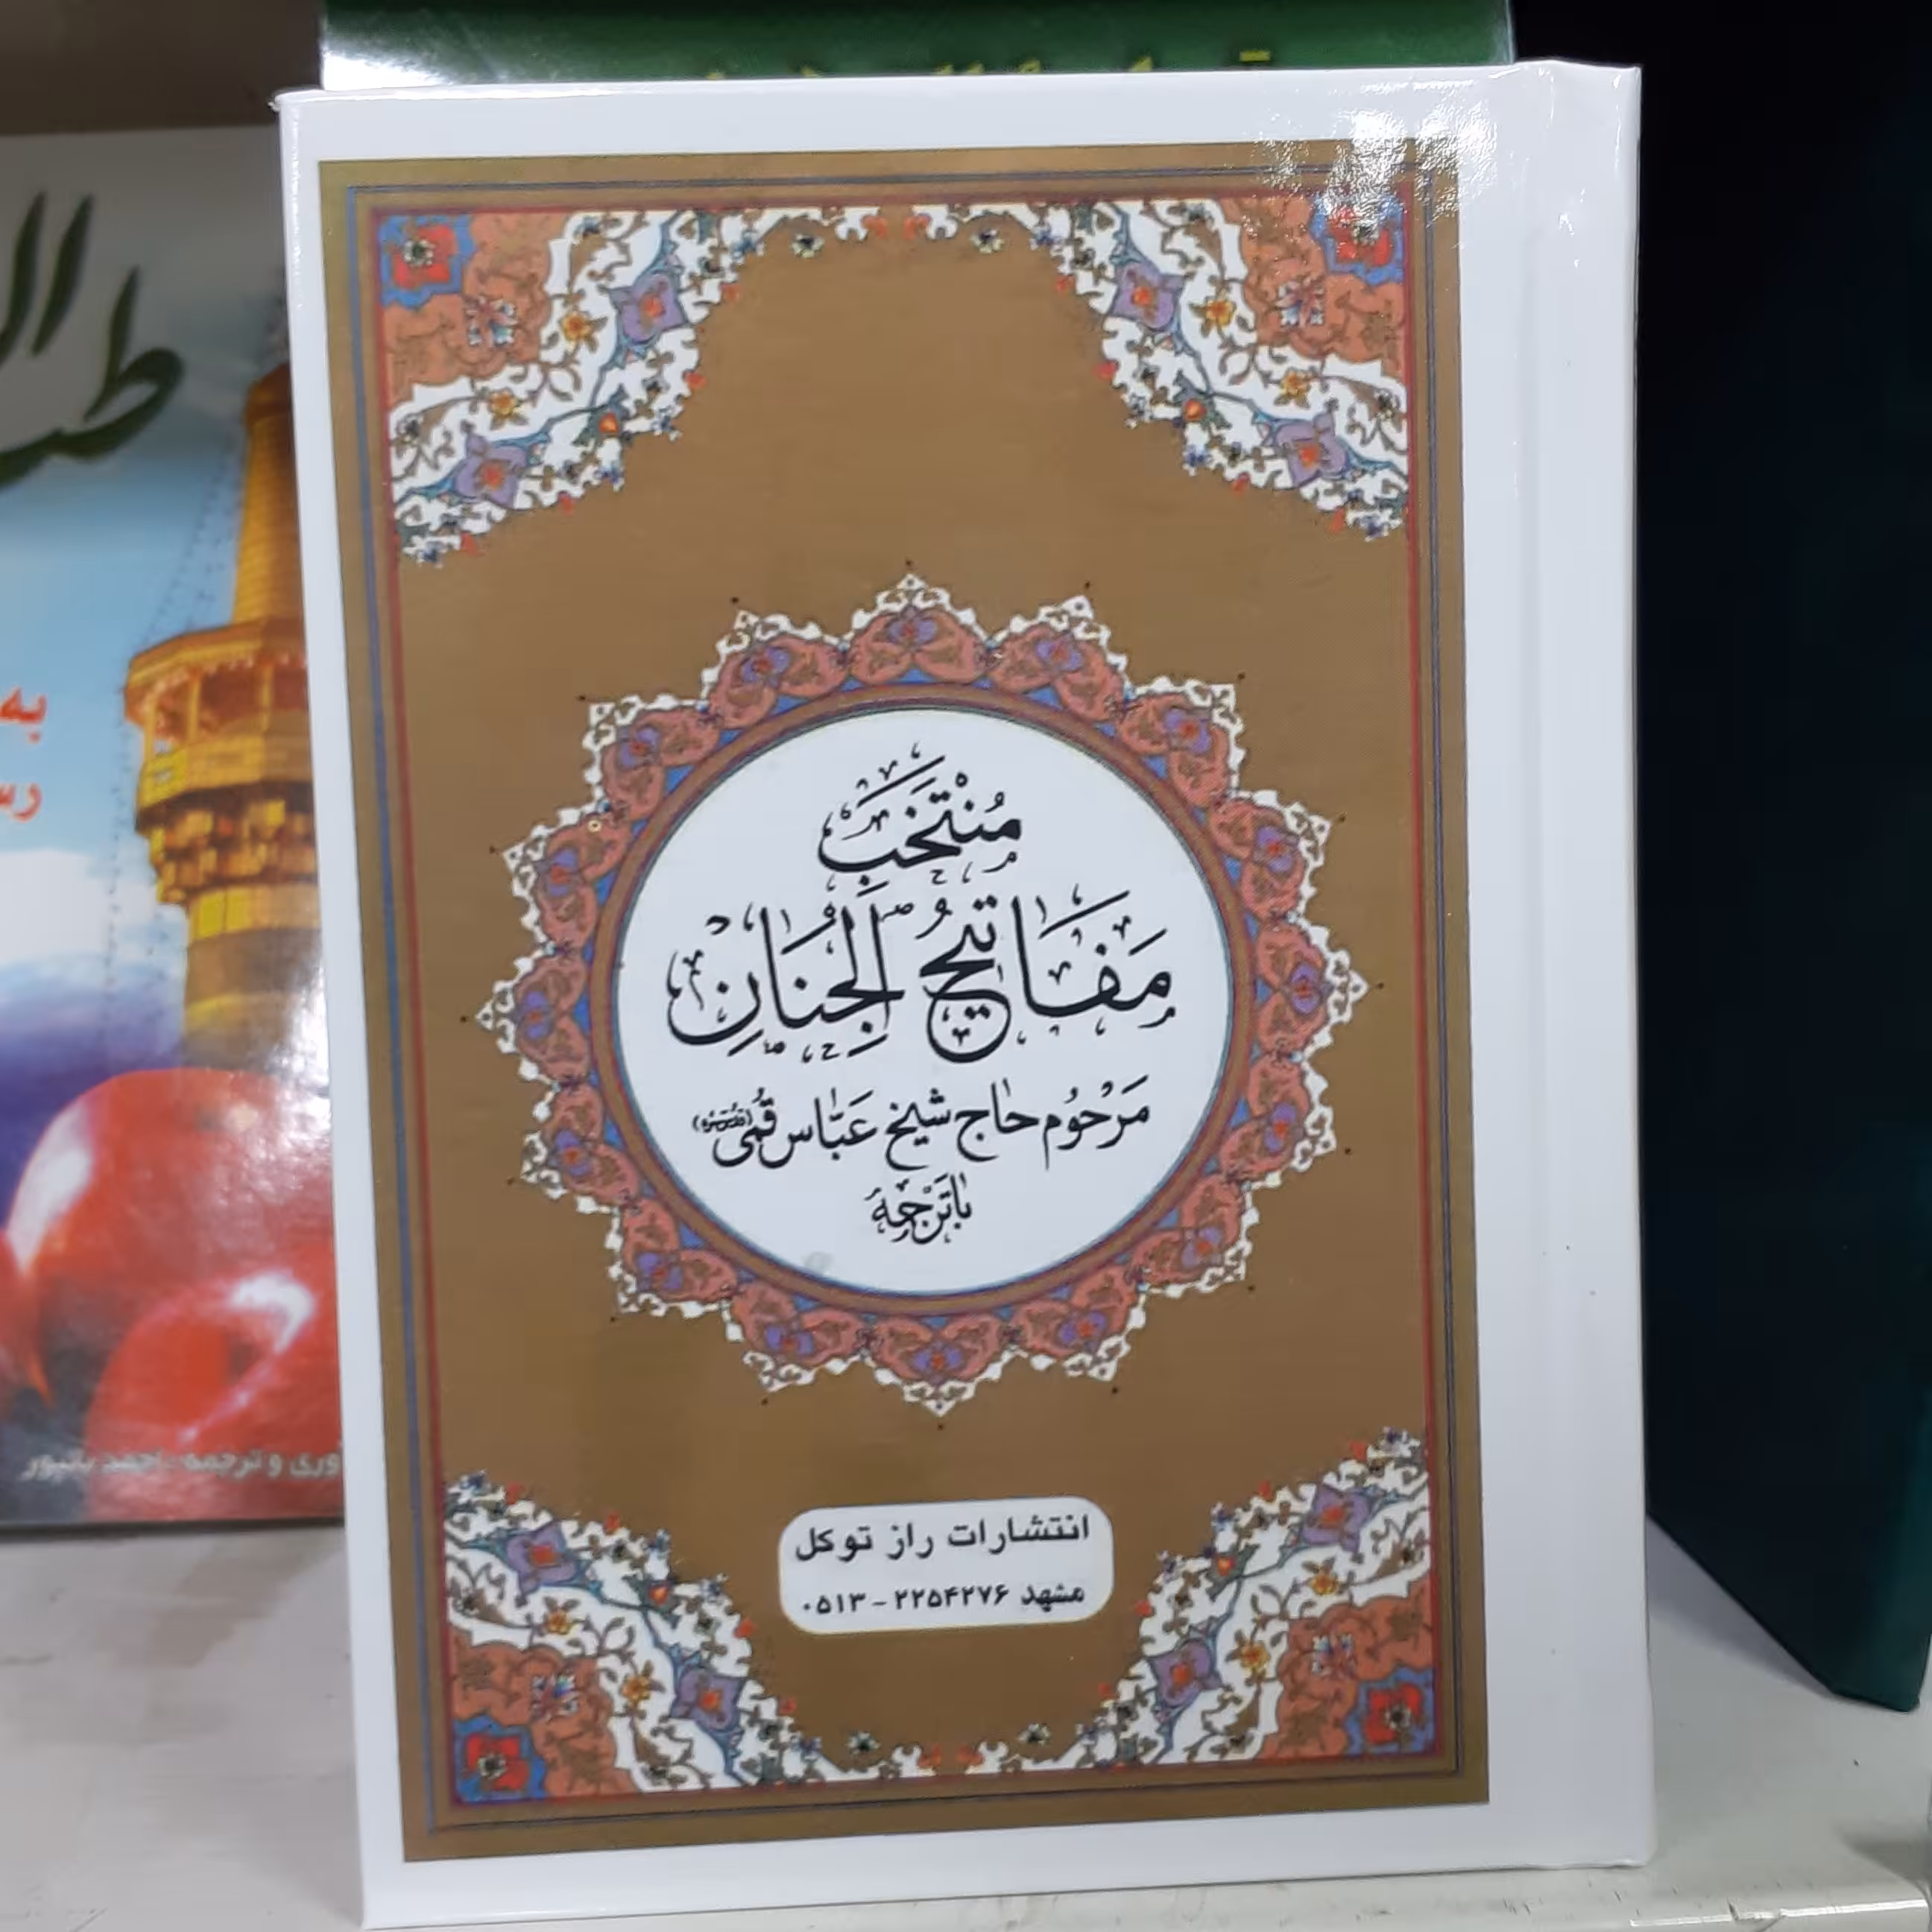 مُنْتَخَبِ
مَفَاتیحُ الْجِنَانِ
مَرْحُوم حٰاج شیخ عَبّٰاس قُمّی
بٰاتَرْجَمِهٔ
انتشارات راز توکل
مشهد ۲۲۵۴۲۷۶ - ۰۵۱۳
به
وری و ترجمه : احمد